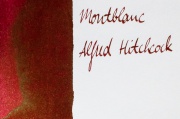 Montblanc
Alfred Hitchcock